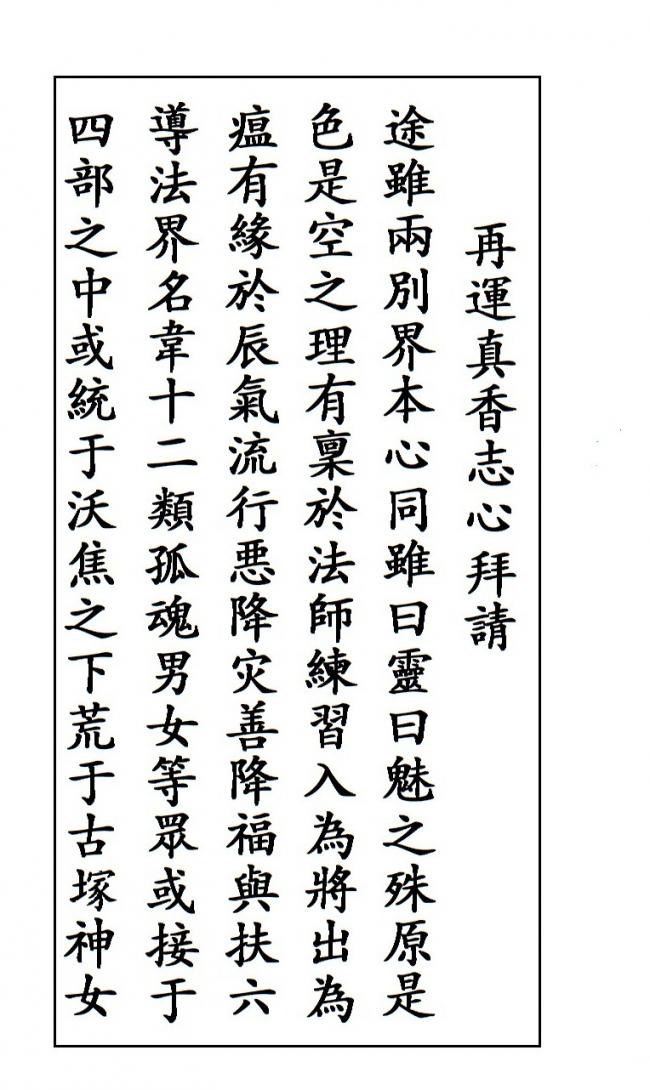 再運真香志心拜請
途雖兩別界本心同雖曰靈曰魅之殊原是
色是空之理有稟於法師練習入為將出為
瘟有緣於辰氣流行悪降灾善降福與扶六
導法界名韋十二類孤魂男女等眾或接于
四部之中或統于沃焦之下荒于古塚神女